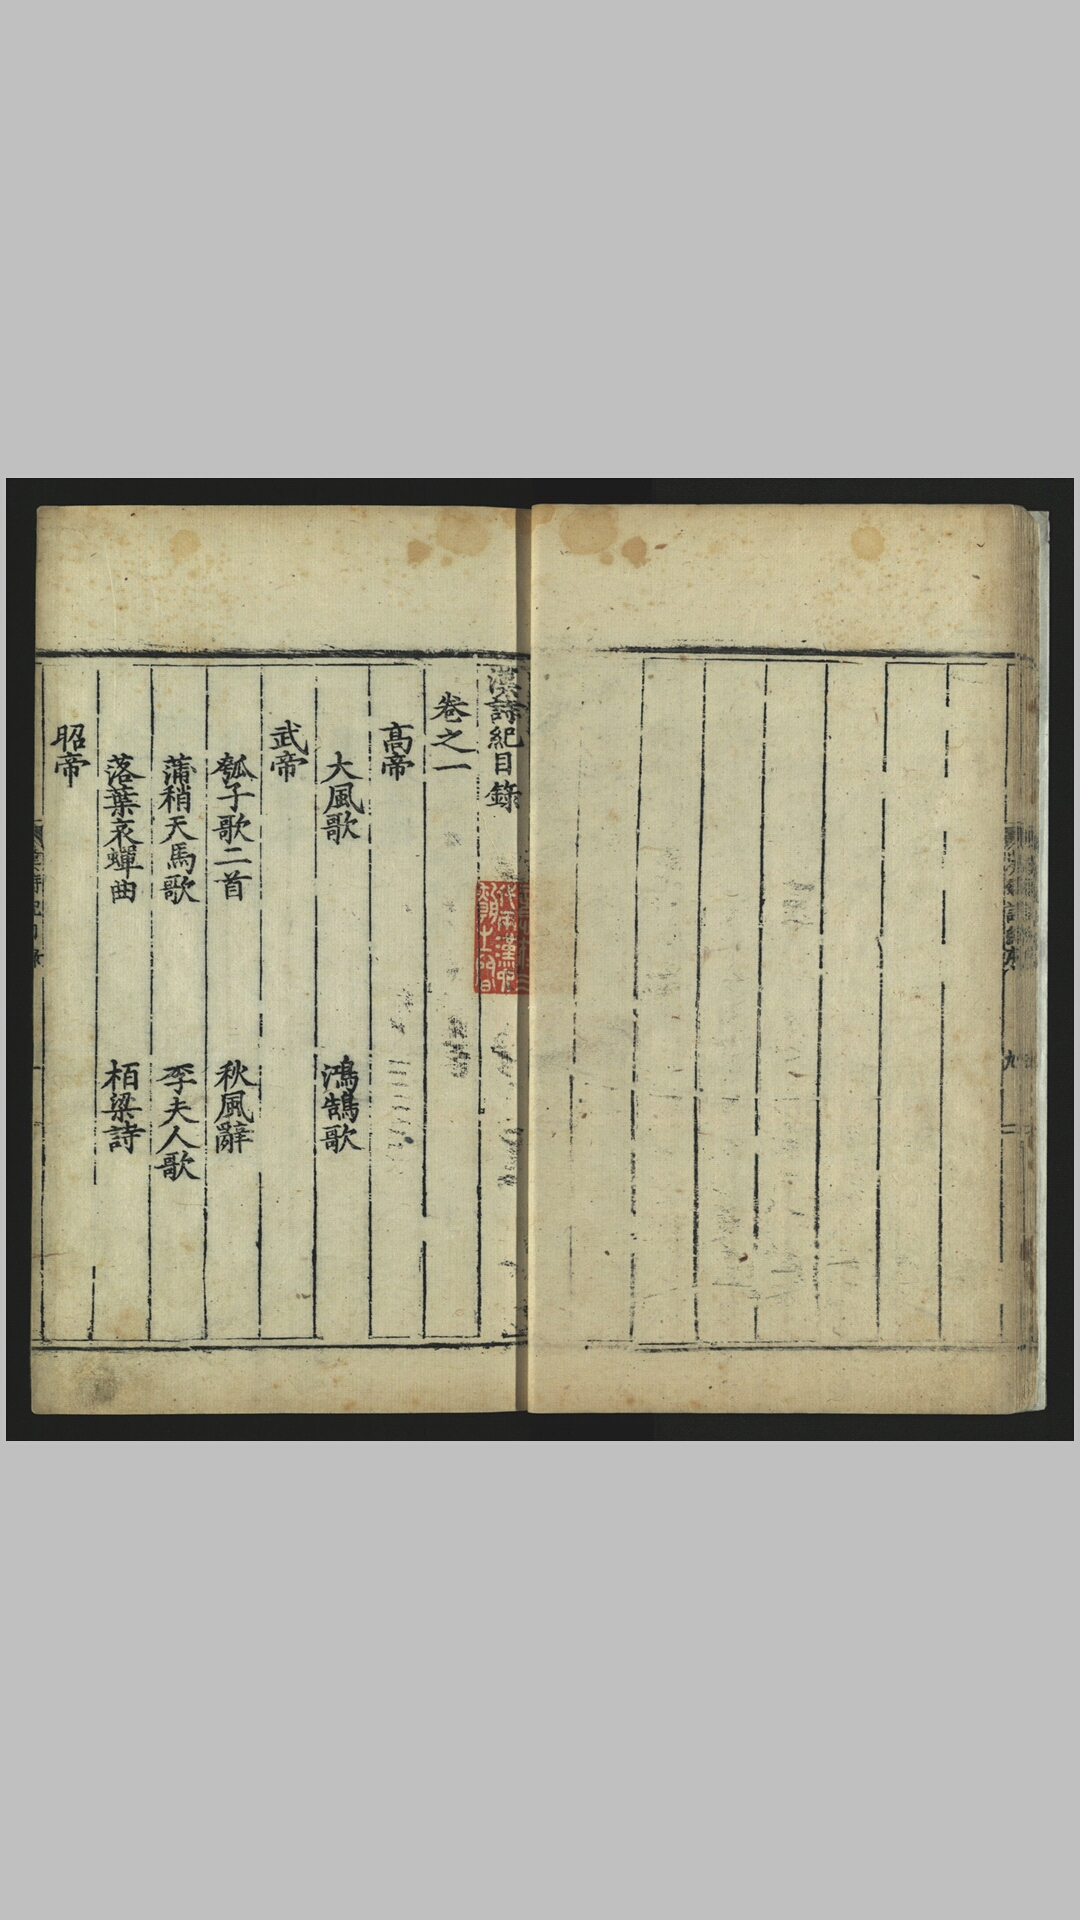 漢詩紀目錄
卷之一
高帝
大風歌
鴻鵠歌
武帝
瓠子歌二首
秋風辭
蒲稍天馬歌
李夫人歌
落葉哀蟬曲
栢梁詩
昭帝